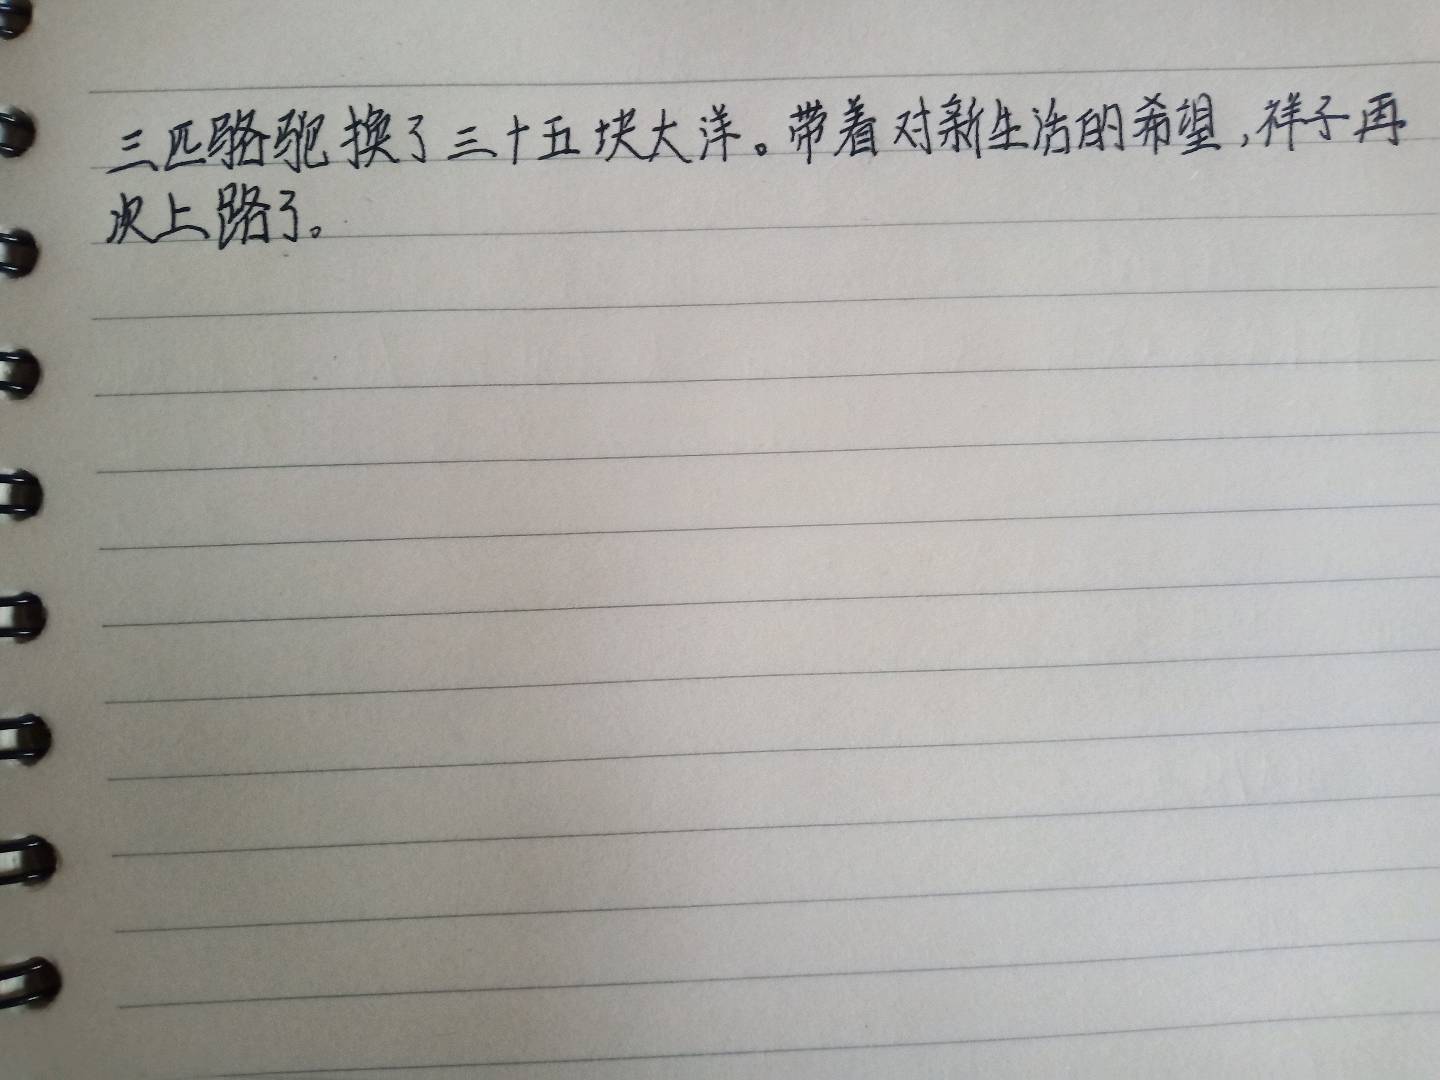 三匹骆驼换了三十五块大洋。带着对新生活的希望,祥子再
次上路了。